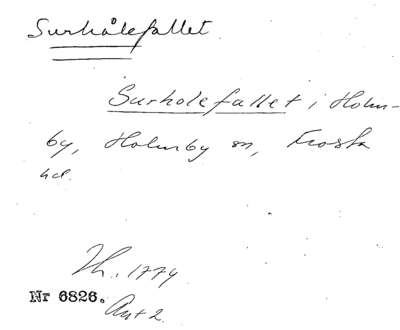 Surhålefallet
Surholefallet i Holm-
by, Holmby sn, Frosta
hd.
Th. 1774
Nr 6826.
Ant 2.